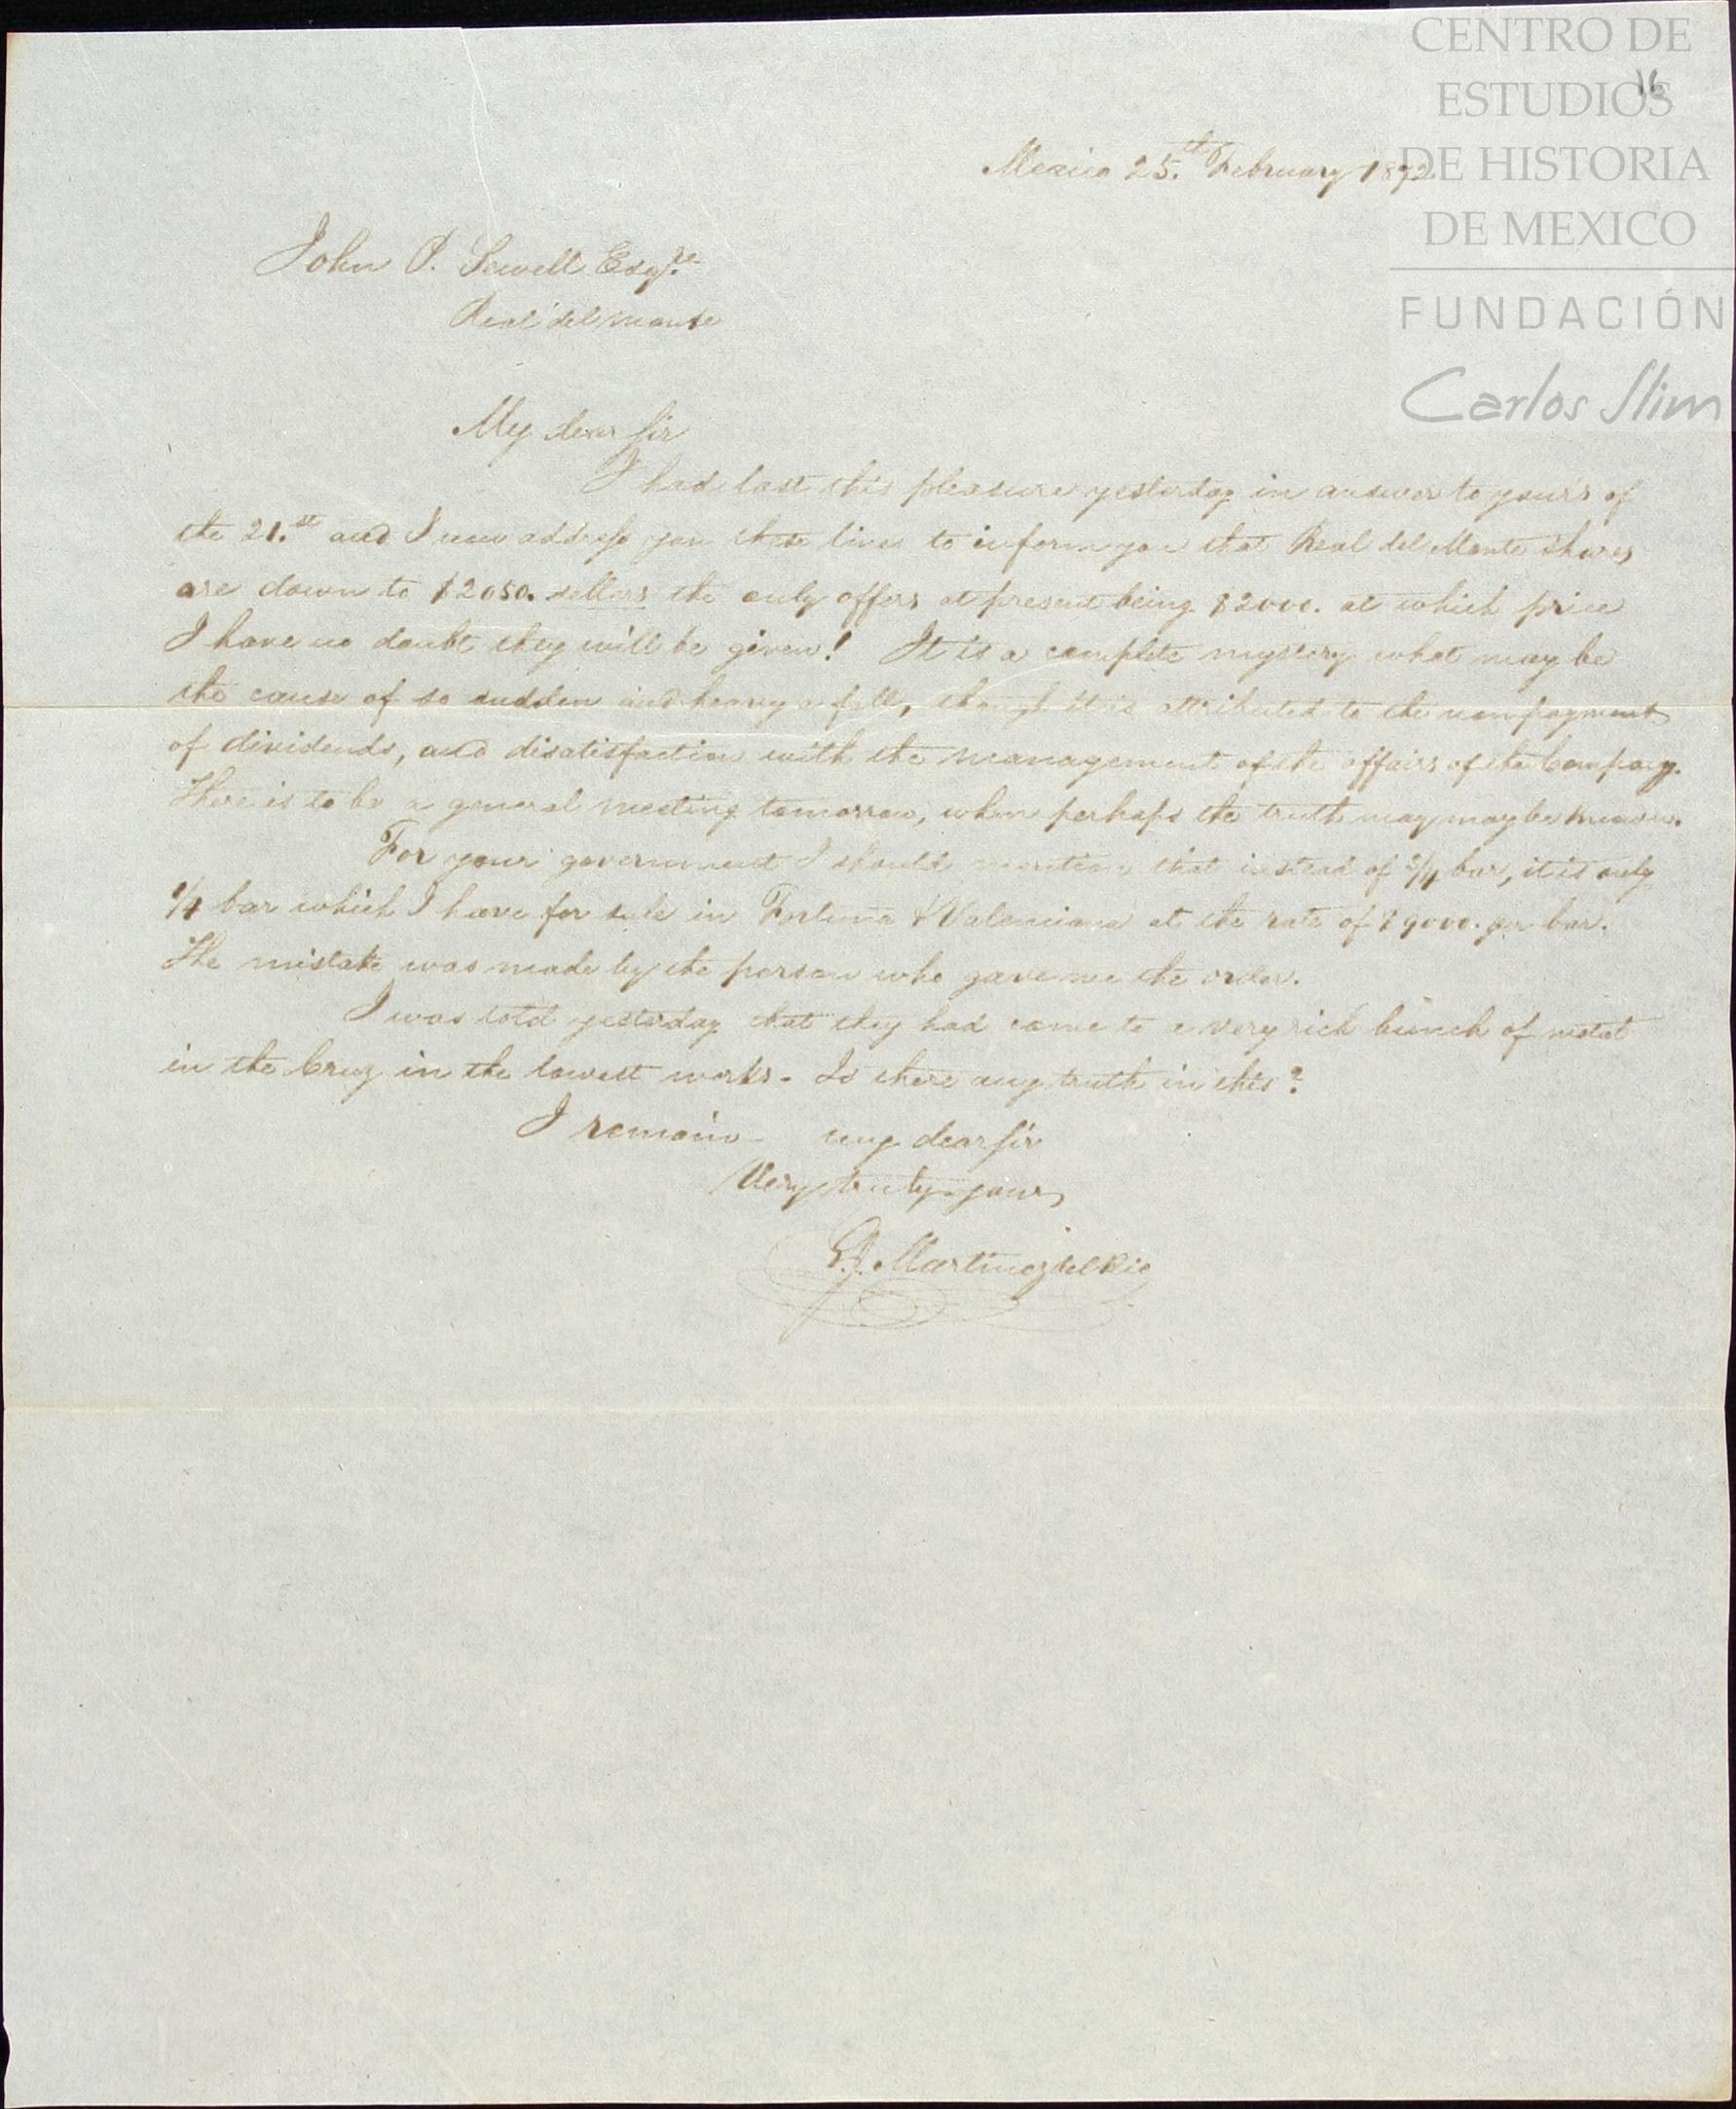 CENTRO DE
ESTUDIOS
DE HISTORIA
DE MEXICO
FUNDACIÓN
Carlos Slim
16
Mexico 25.th February 1872.
John P. Sewell Esqre.
Real del monte
My dear Sir
I had last this pleasure yesterday in answer to yours of
the 21.st and I now address you these lines to inform you that Real del Monte shares
are down to $2050. sellers the only offers at present being $2000. at which price
I have no doubt they will be given! It is a complete mystery what may be
the cause of so sudden and heavy a fall, though it is attributed to the nonpayment
of dividends, and disatisfaction with the management of the affairs of the Company.
There is to be a general meeting tomorrow, when perhaps the truth may may be known.
For your government I should mention that instead of 3/4 bar, it is only
1/4 bar which I have for sale in Fortuna & Valenciana at the rate of $9000. per bar.
The mistake was made by the person who gave me the order.
I was told yesterday that they had come to a very rich bunch of metal
in the Cruz in the lowest works. Is there any truth in this?
I remain my dear Sir
Very truly yours
Martinez del Rio